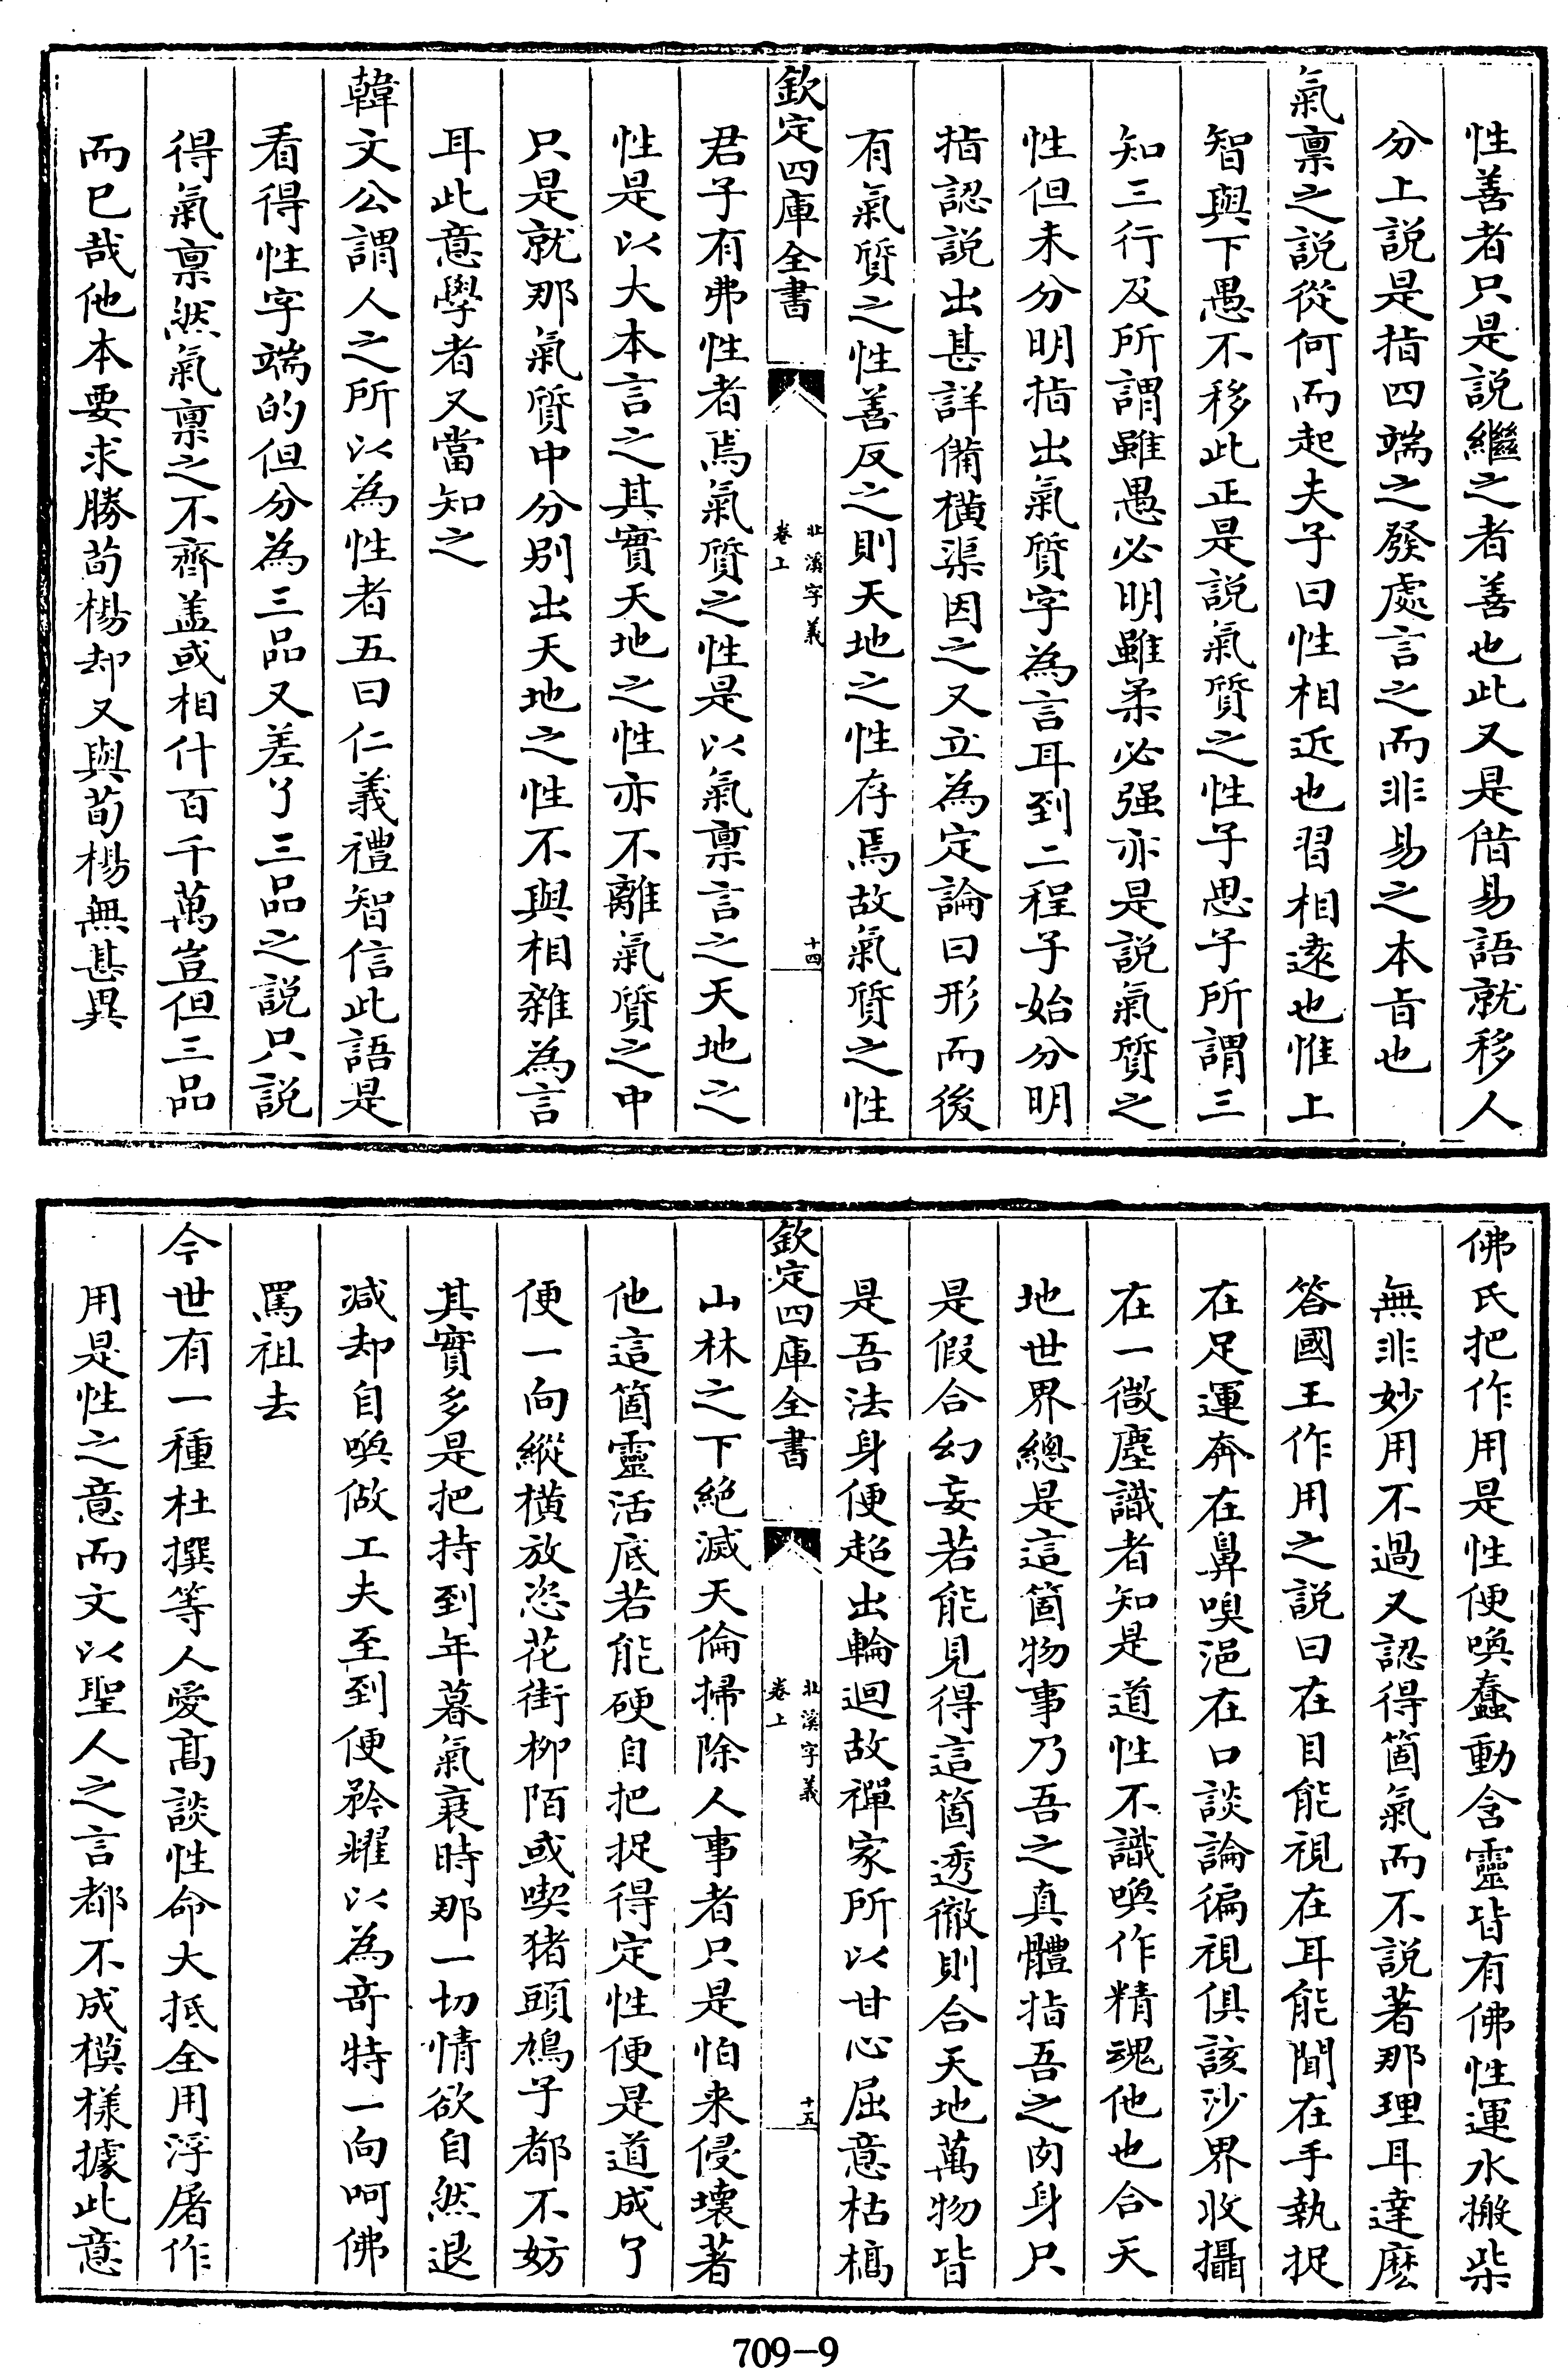 性善者只是説繼之者善也此又是借易語就移人
分上説是指四端之發處言之而非易之本㫖也
氣禀之説從何而起夫子曰性相近也習相逺也惟上
智與下愚不移此正是説氣質之性子思子所謂三
知三行及所謂雖愚必明雖柔必强亦是説氣質之
性但未分明指出氣質字為言耳到二程子始分明
指認説出甚詳備横渠因之又立為定論曰形而後
有氣質之性善反之則天地之性存焉故氣質之性
欽定四庫全書
北溪字義
卷上
十四
君子有弗性者焉氣質之性是以氣禀言之天地之
性是以大本言之其實天地之性亦不離氣質之中
只是就那氣質中分别出天地之性不與相雜為言
耳此意學者又當知之
韓文公謂人之所以為性者五曰仁義禮智信此語是
看得性字端的但分為三品又差了三品之説只説
得氣禀然氣禀之不齊盖或相什百千萬豈但三品
而已哉他本要求勝荀楊却又與荀楊無甚異
佛氏把作用是性便喚蠢動含靈皆有佛性運水搬柴
無非妙用不過又認得箇氣而不説著那理耳達麽
答國王作用之説曰在目能視在耳能聞在手執捉
在足運奔在鼻嗅浥在口談論徧視俱該沙界收攝
在一微塵識者知是道性不識喚作精魂他也合天
地世界總是這箇物事乃吾之真體指吾之肉身只
是假合幻妄若能見得這箇透徹則合天地萬物皆
是吾法身便超出輪迴故禪家所以甘心屈意枯槁
欽定四庫全書
北溪字義
卷上
十五
山林之下絶滅天倫掃除人事者只是怕来侵壊著
他這箇靈活底若能硬自把捉得定性便是道成了
便一向縱横放恣花街柳陌或喫猪頭鳩子都不妨
其實多是把持到年暮氣衰時那一切情欲自然退
减却自喚做工夫至到便矜耀以為竒特一向呵佛
罵祖去
今世有一種杜撰等人愛髙談性命大抵全用浮屠作
用是性之意而文以聖人之言都不成模様據此意
709-9